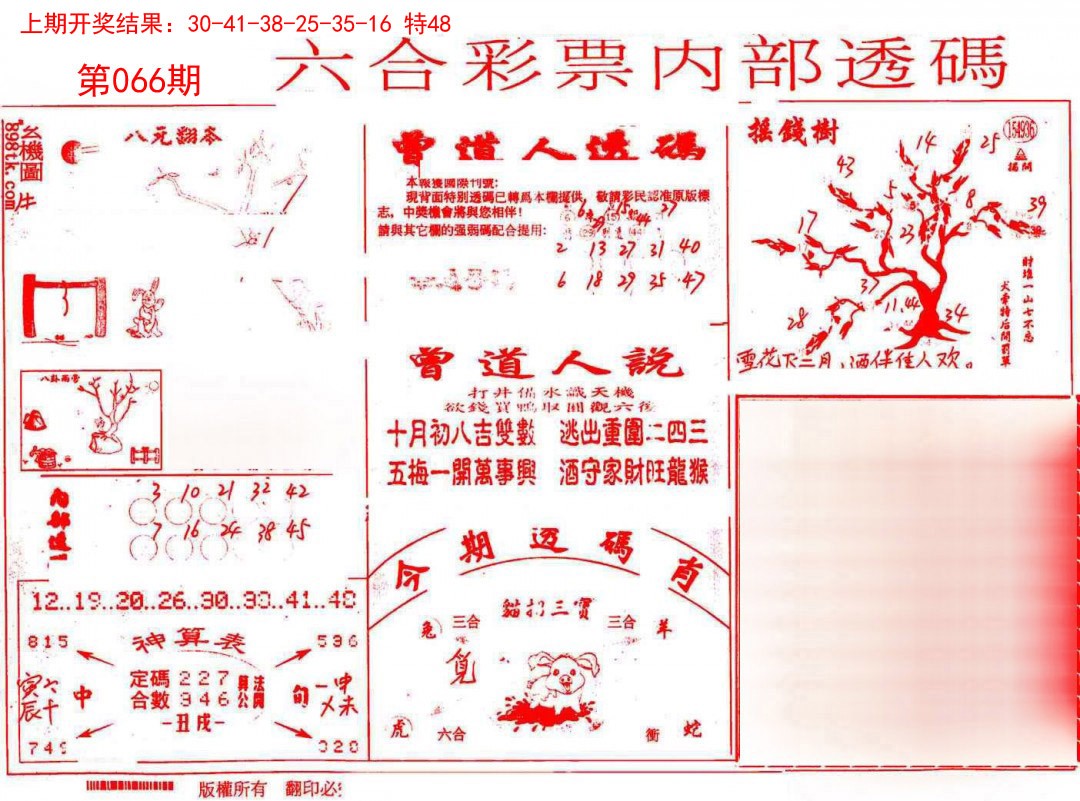 上期开奖结果：30-41-38-25-35-16 特48
第066期
六合彩票内部透碼
玄機圖
898tk.com
牛
八元翻本
曾道人透碼
本報獲國際刊號：
現背面特別透碼已轉爲本欄提供，敬請彩民認准原版標
志，中獎機會將與您相伴！
請與其它欄的强弱碼配合提用：
6 15 37
2 13 27 31 40
6 18 29 35 47
搖錢樹
154936
揭開
14 25
43
5 8 39
17 23
37 11.44
28 34
財堆一山七不忘
犬帶特后開前單
雪花下二月，酒伴佳人欢。
曾道人説
打井備水識天機
十月初八吉雙數 逃出重圍二四三
五梅一開萬事興 酒守家財旺龍猴
3 10 21 32 42
7 16 24 38 45
今期透碼肖
貓打三寶
兔 三合 三合 羊
覓
虎 六合 衝 蛇
12..19..20..26..30..33..41..48
815 神算表 536
定碼 227
合數 346
算法公開
-丑戌-
寅辰 六十 中
旬 一メ 申未
749 028
版權所有 翻印必